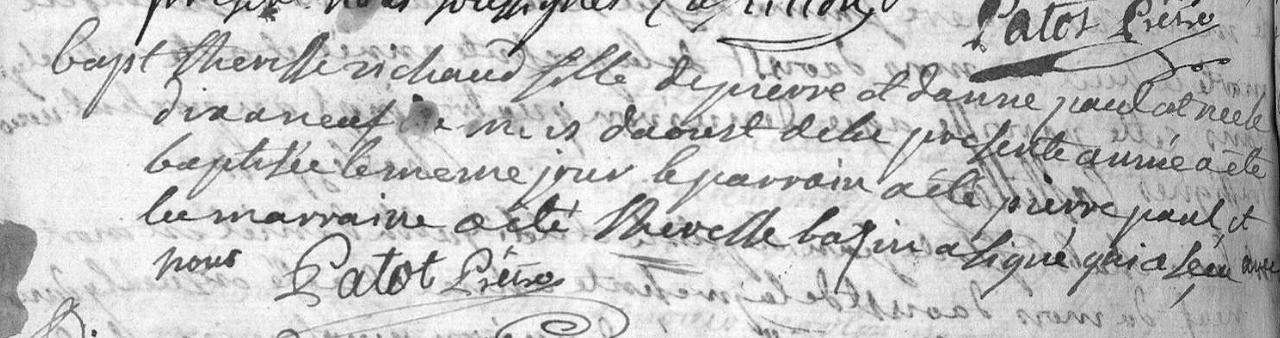 present nous soussignés
Patot Prêtre
bapt Theresse richaud fille de pierre et danne paul est née le
dixaneuf du mois daoust de la presente année a été
baptisée le meme jour le parrain a été pierre paul et
la marraine a été Theresse bazin a signé qui a sçeu avec
nous Patot Prêtre